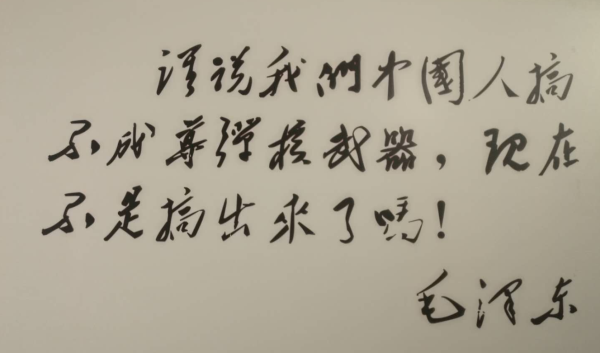 谁说我們中國人搞
不成導弹核武器，现在
不是搞出来了嗎！
毛泽东